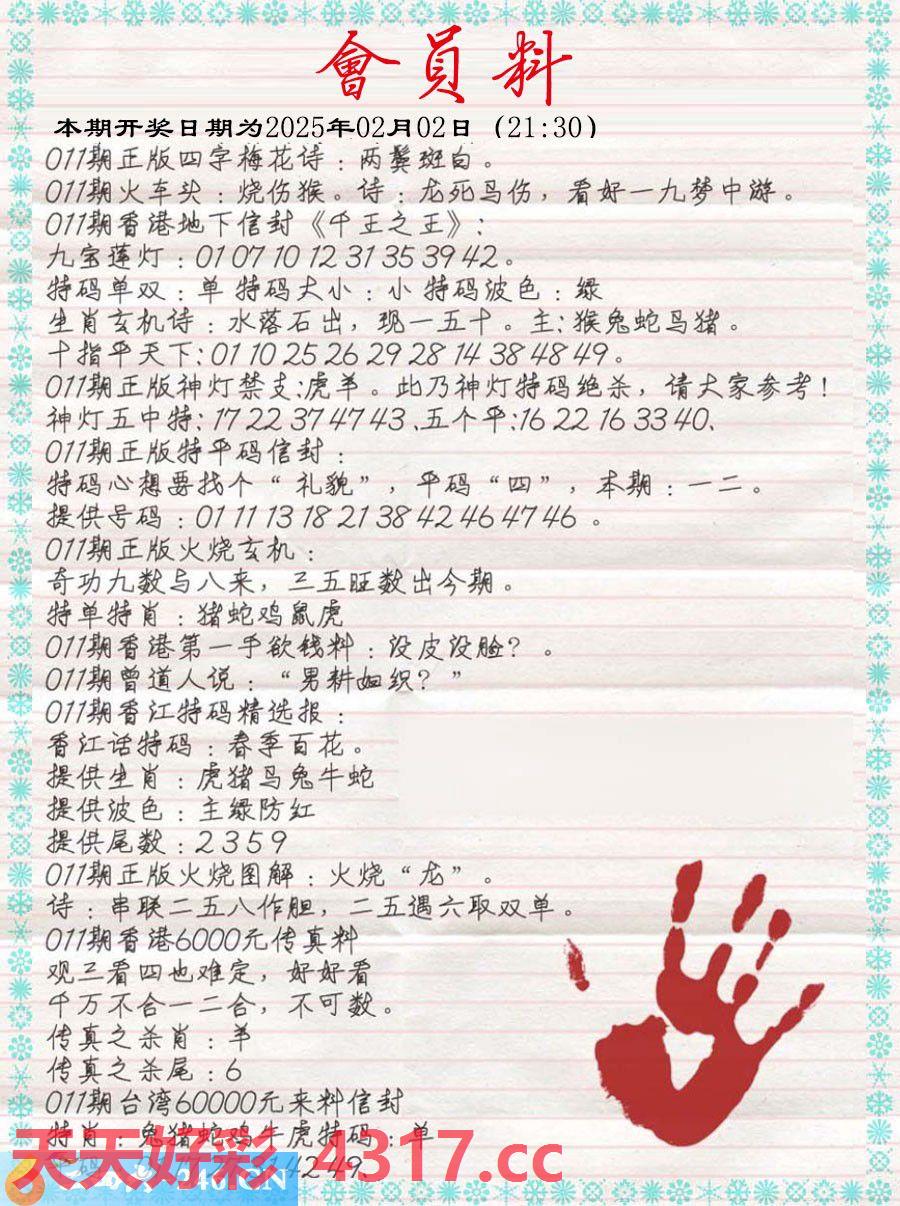 會員料
本期开奖日期为2025年02月02日（21:30）
011期正版四字梅花诗：两鬓斑白。
011期火车头：烧伤猴。诗：龙死鸟伤，看好一九梦中游。
011期香港地下信封《千王之王》：
九宝莲灯：01 07 10 12 31 35 39 42。
特码单双：单 特码大小：小 特码波色：绿
生肖玄机诗：水落石出，现一五十。主：猴兔蛇马猪。
十指平天下：01 10 25 26 29 28 14 38 48 49。
011期正版神灯禁支:虎羊。此乃神灯特码绝杀，请大家参考！
神灯五中特：17 22 37 47 43、五个平:16 22 16 33 40、
011期正版特平码信封：
特码心想要找个“礼貌”，平码“四”，本期：一二。
提供号码：01 11 13 18 21 38 42 46 47 46 。
011期正版火烧玄机：
奇功九数与八来，三五旺数出今期。
特单特肖：猪蛇鸡鼠虎
011期香港第一手欲钱料：没皮没脸？。
011期曾道人说：“男耕女织？”
011期香江特码精选报：
香江话特码：春季百花。
提供生肖：虎猪马兔牛蛇
提供波色：主绿防红
提供尾数：2 3 5 9
011期正版火烧图解：火烧“龙”。
诗：串联二五八作胆，二五遇六取双单。
011期香港6000元传真料
观三看四也难定，好好看
千万不合一二合，不可数。
传真之杀肖：羊
传真之杀尾：6
011期台湾60000元来料信封
特肖：兔猪蛇鸡牛虎特码：单
天天好彩 4317.cc
42 49
246.CN